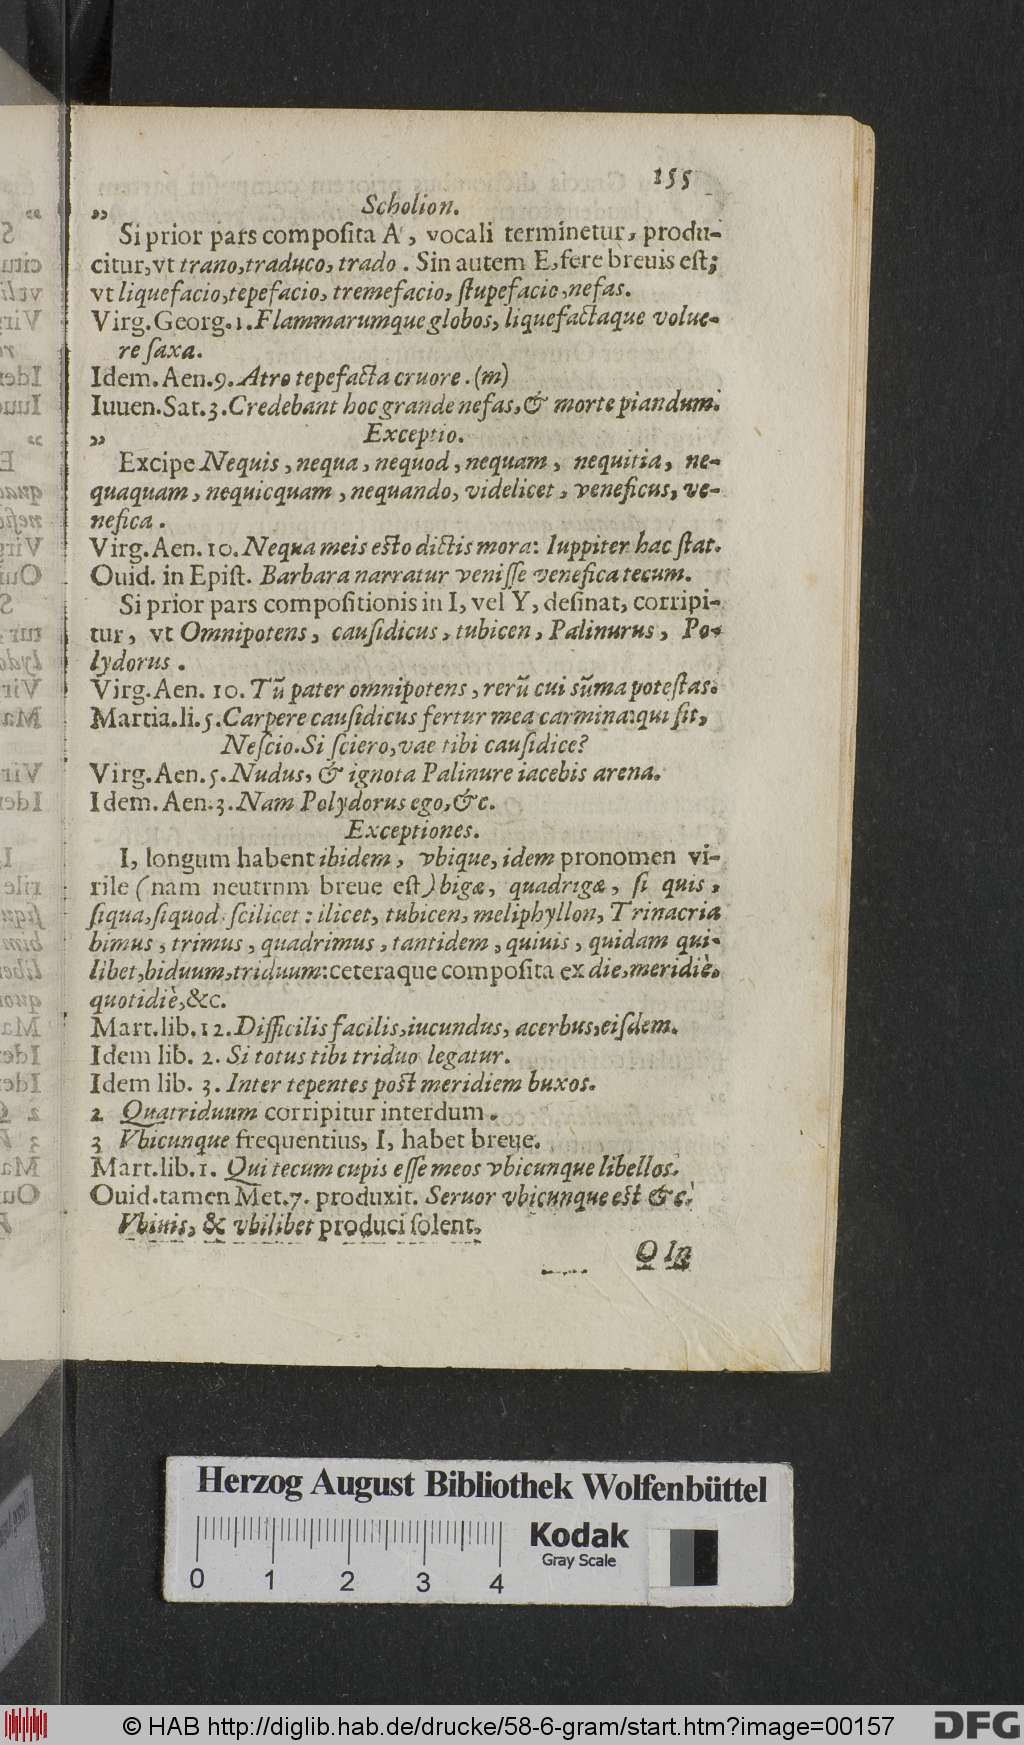 155
„ Scholion.
Si prior pars composita A, vocali terminetur, produ-
citur, vt trano, traduco, trado. Sin autem E, fere breuis est;
vt liquefacio, tepefacio, tremefacio, stupefacio, nefas.
Virg. Georg. 1. Flammarumque globos, liquefactaque volue-
re saxa.
Idem. Aen. 9. Atro tepefacta cruore. (m)
Iuuen. Sat. 3. Credebant hoc grande nefas, & morte piandum.
„ Exceptio.
Excipe Nequis, nequa, nequod, nequam, nequitia, ne-
quaquam, nequicquam, nequando, videlicet, veneficus, ve-
nefica.
Virg. Aen. 10. Nequa meis esto dictis mora: Iuppiter hac stat.
Ouid. in Epist. Barbara narratur venisse venefica tecum.
Si prior pars compositionis in I, vel Y, desinat, corripi-
tur, vt Omnipotens, causidicus, tubicen, Palinurus, Po-
lydorus.
Virg. Aen. 10. Tũ pater omnipotens, rerũ cui sũma potestas.
Martia. li. 5. Carpere causidicus fertur mea carmina: qui sit,
Nescio. Si sciero, vae tibi causidice?
Virg. Aen. 5. Nudus, & ignota Palinure iacebis arena.
Idem. Aen. 3. Nam Polydorus ego, &c.
Exceptiones.
I, longum habent ibidem, vbique, idem pronomen vi-
rile (nam neutrnm breue est) bigæ, quadrigæ, si quis,
siqua, siquod scilicet: ilicet, tubicen, meliphyllon, Trinacria
bimus, trimus, quadrimus, tantidem, quiuis, quidam qui-
libet, biduum, triduum: ceteraque composita ex die, meridiè,
quotidiè, &c.
Mart. lib. 12. Difficilis facilis, iucundus, acerbus, eisdem.
Idem lib. 2. Si totus tibi triduo legatur.
Idem lib. 3. Inter tepentes post meridiem buxos.
2 Quatriduum corripitur interdum.
3 Vbicunque frequentius, I, habet breue.
Mart. lib. 1. Qui tecum cupis esse meos vbicunque libellos.
Ouid. tamen Met. 7. produxit. Seruor vbicunque est &c.
Vbiuis, & vbilibet produci solent.
O In
Herzog August Bibliothek Wolfenbüttel
Kodak
Gray Scale
0 1 2 3 4
© HAB http://diglib.hab.de/drucke/58-6-gram/start.htm?image=00157
DFG